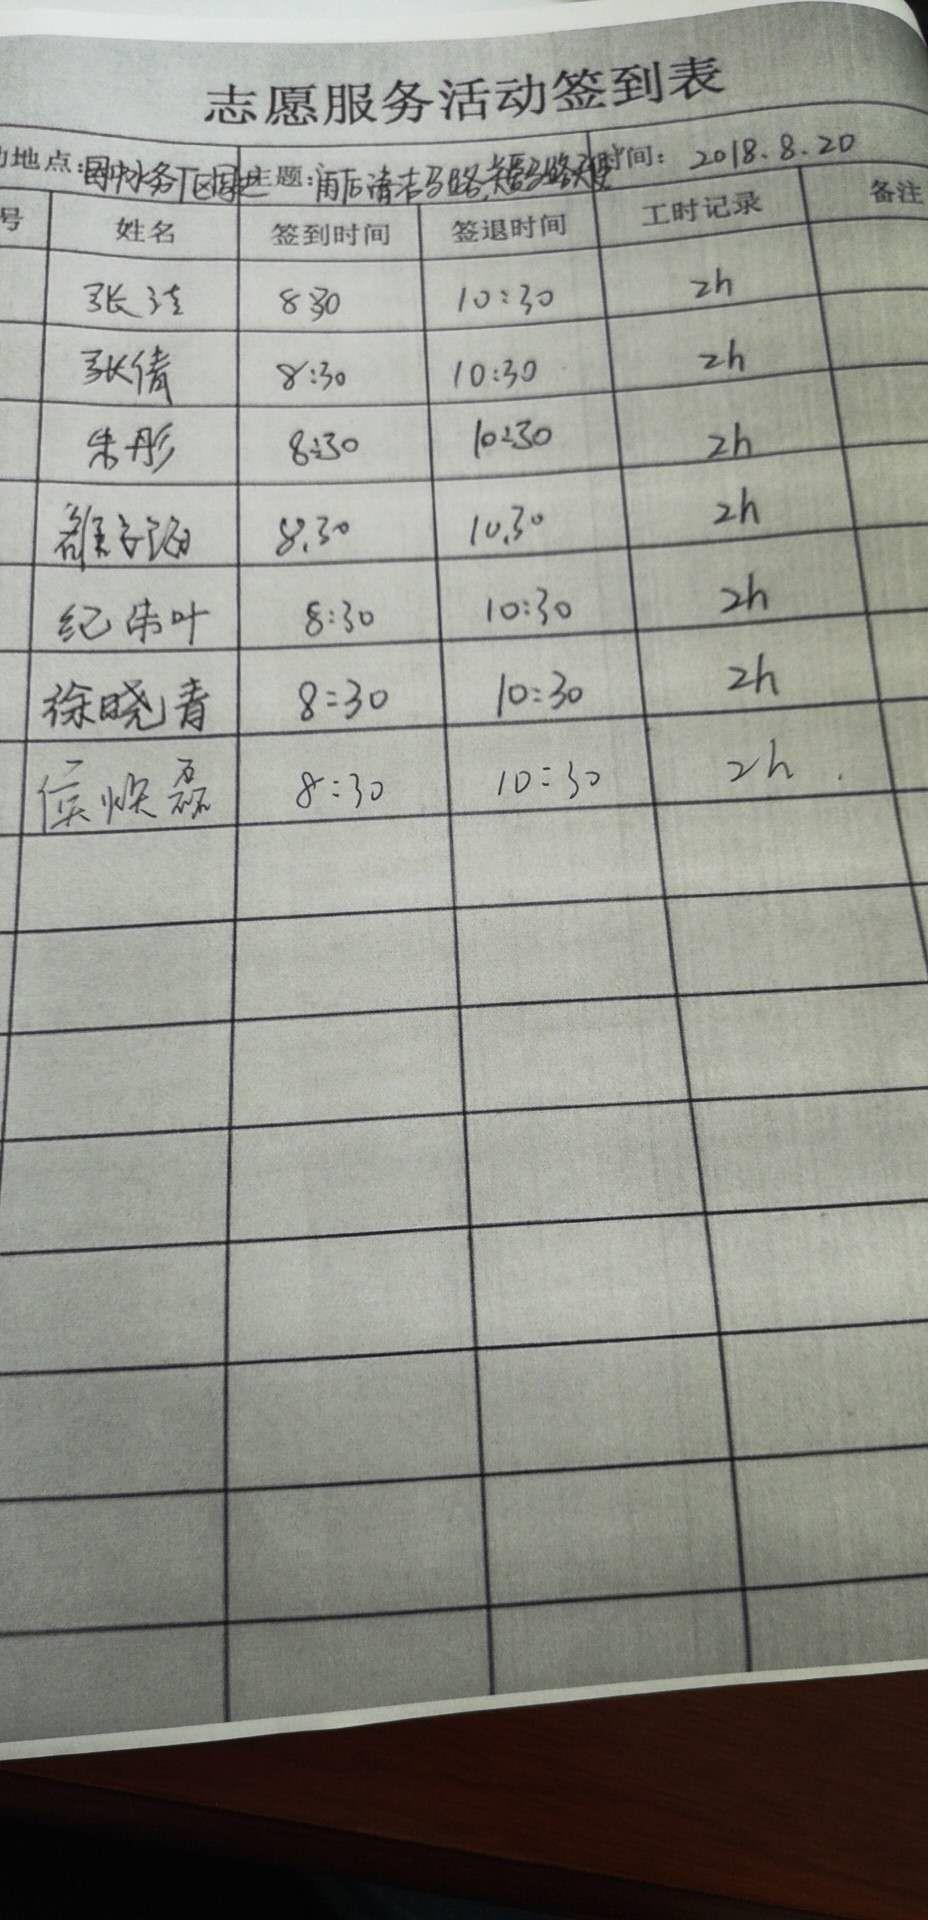 志愿服务活动签到表
动地点:国中水务厂区周边 主题:雨后清扫马路, 时间: 2018.8.20
号 姓名 签到时间 签退时间 工时记录 备注
张洁 8:30 10:30 2h
张倩 8:30 10:30 2h
朱彤 8:30 10:30 2h
8.30 10.30 2h
纪朱叶 8:30 10:30 2h
徐晓青 8:30 10:30 2h
侯焕磊 8:30 10:30 2h